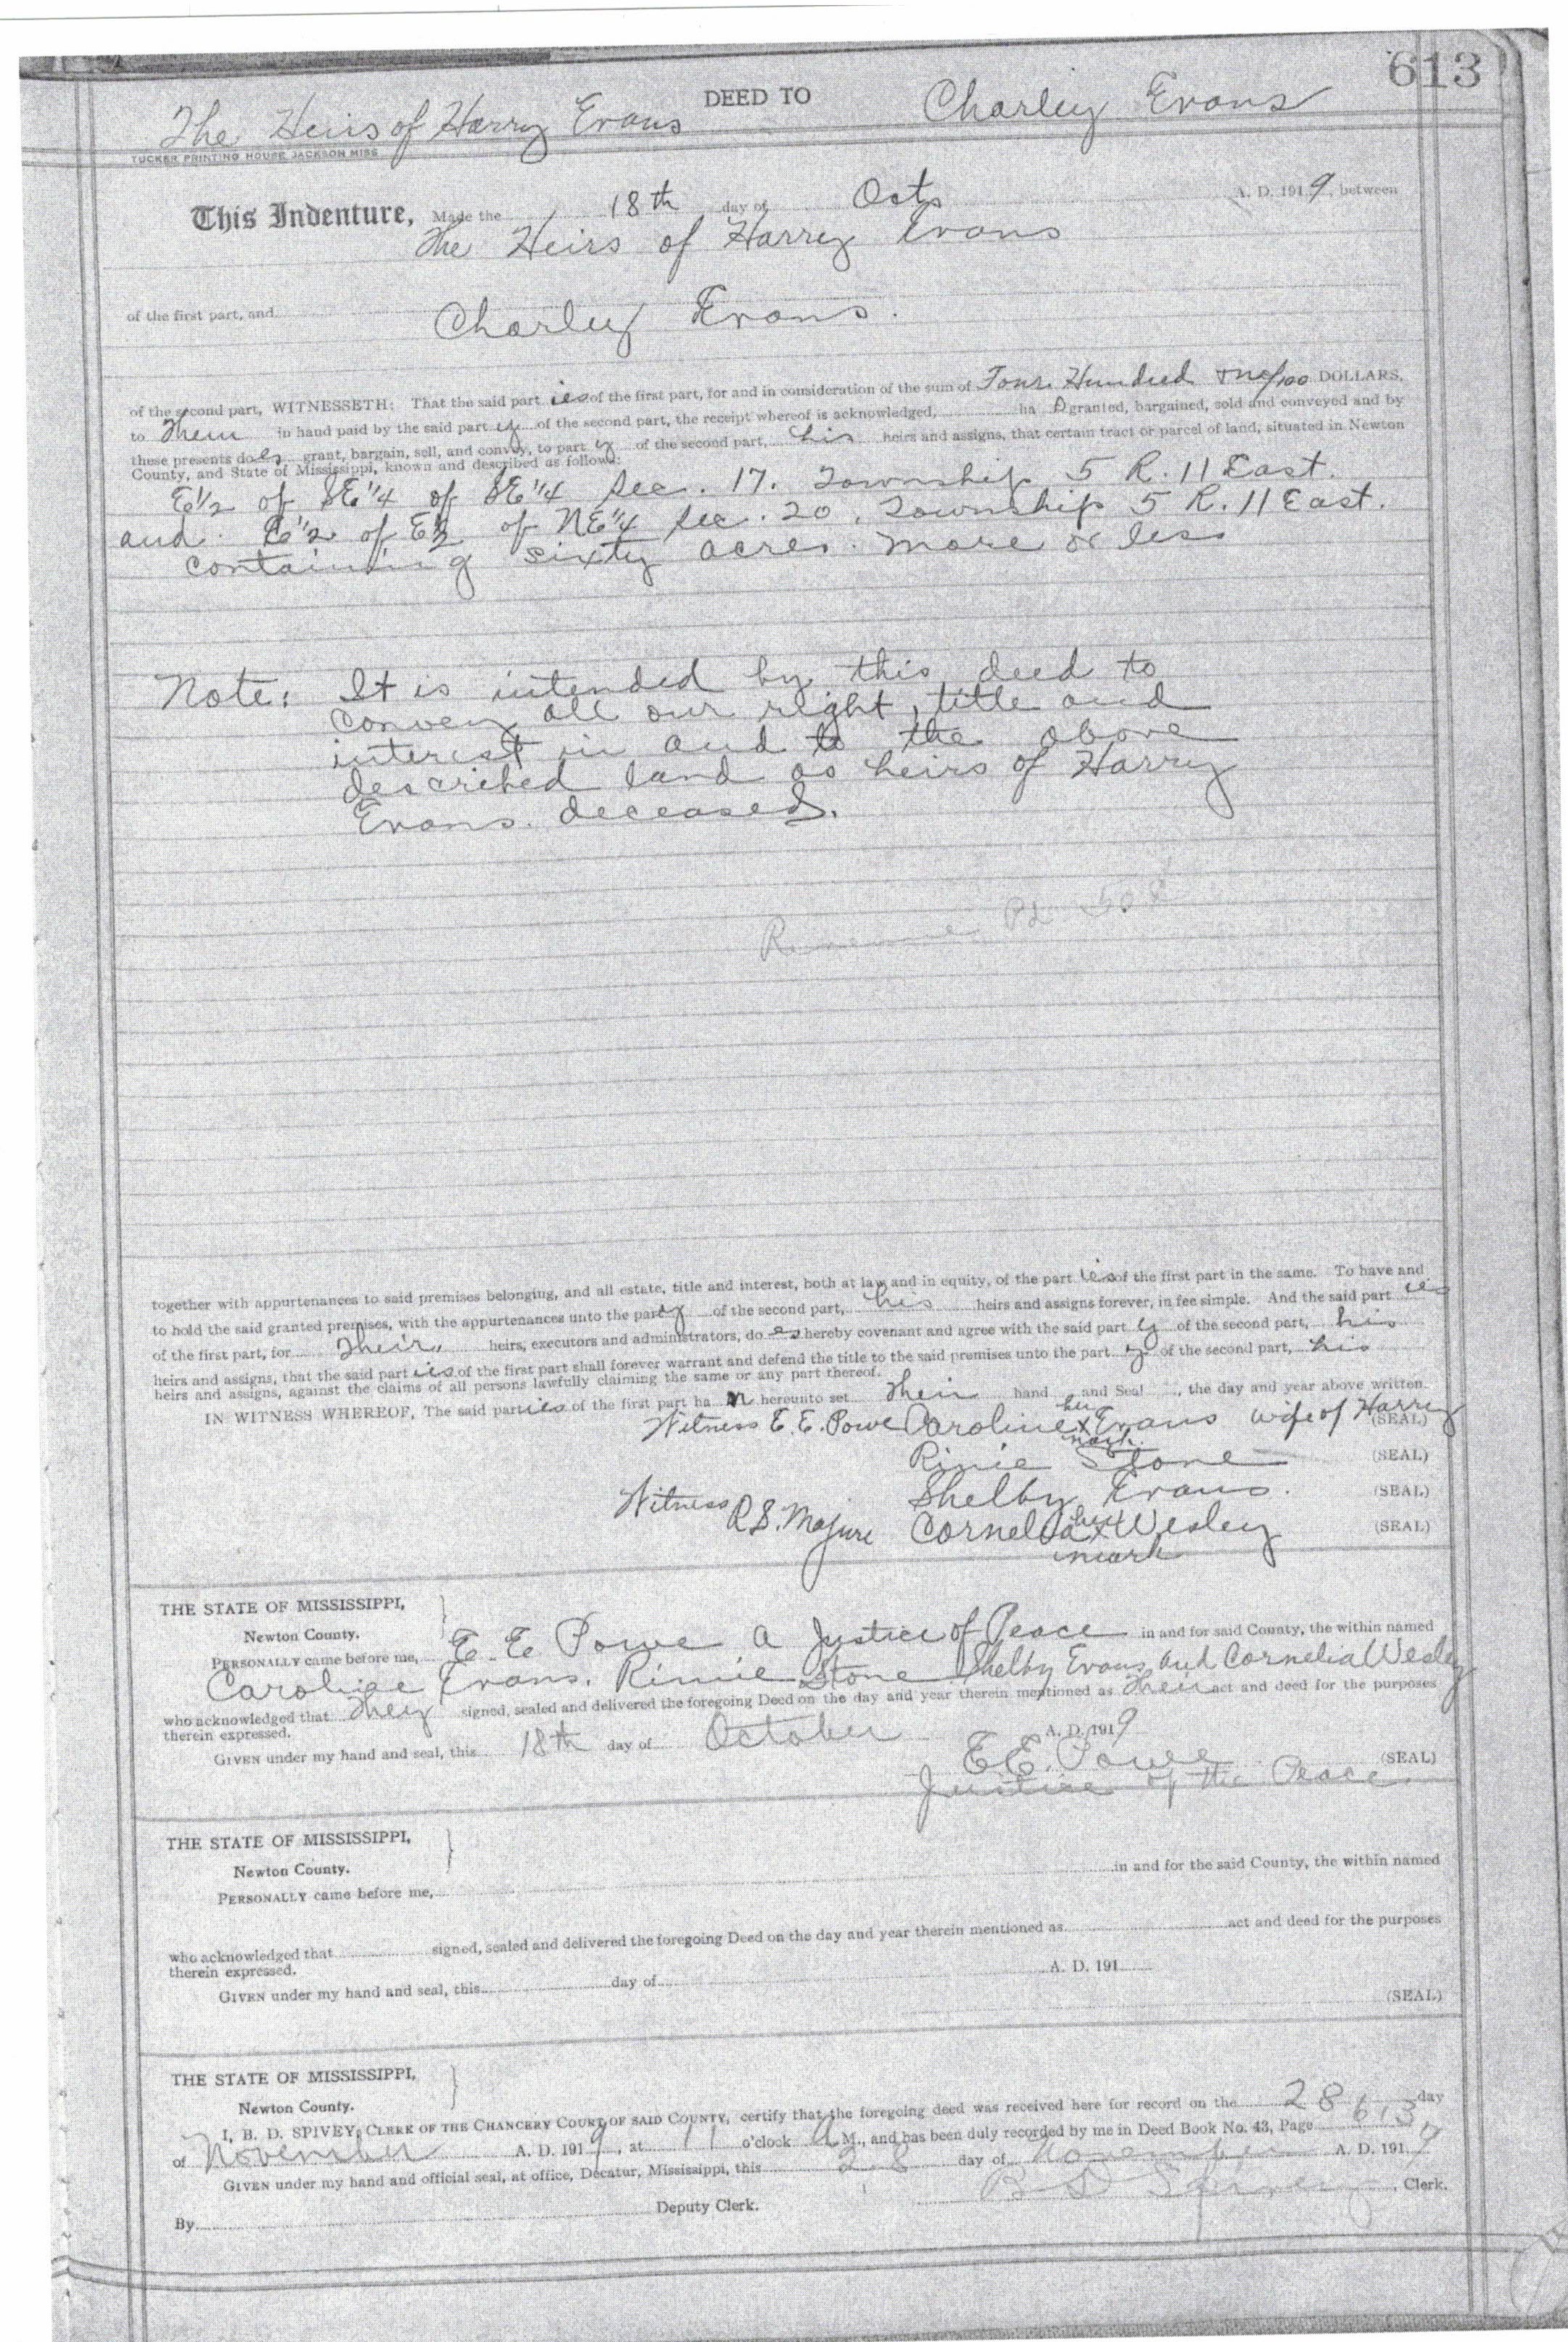 613
DEED TO
The Heirs of Harry Evans Charley Evans
TUCKER PRINTING HOUSE JACKSON MISS
This Indenture, Made the 18th day of Oct A. D. 1919, between
The Heirs of Harry Evans
of the first part, and
Charley Evans.
of the second part, WITNESSETH: That the said part ies of the first part, for and in consideration of the sum of Four Hundred & no/100 DOLLARS,
to Them in hand paid by the said part y of the second part, the receipt whereof is acknowledged, ha s granted, bargained, sold and conveyed and by
these presents do es grant, bargain, sell, and convey, to part y of the second part, his heirs and assigns, that certain tract or parcel of land, situated in Newton
County, and State of Mississippi, known and described as follows:
E 1/2 of SE 1/4 of SE 1/4 Sec. 17. Township 5 R. 11 East.
and E 1/2 of E 1/2 of NE 1/4 Sec. 20. Township 5 R. 11 East.
containing sixty acres. more or less
Note: It is intended by this deed to
convey all our right, title and
interest in and to the above
described land as heirs of Harry
Evans. deceased.
together with appurtenances to said premises belonging, and all estate, title and interest, both at law and in equity, of the part ies of the first part in the same. To have and
to hold the said granted premises, with the appurtenances unto the part y of the second part, his heirs and assigns forever, in fee simple. And the said part ies
of the first part, for Their heirs, executors and administrators, do es hereby covenant and agree with the said part y of the second part, his
heirs and assigns, that the said part ies of the first part shall forever warrant and defend the title to the said premises unto the part y of the second part, his
heirs and assigns, against the claims of all persons lawfully claiming the same or any part thereof.
IN WITNESS WHEREOF, The said parties of the first part ha hereunto set Their hand and Seal, the day and year above written.
Witness E. E. Powe Caroline her x mark Evans wife of Harry (SEAL)
Rinie Stone (SEAL)
Shelby Evans. (SEAL)
Witness R. S. Majure Cornelia her x mark Wesley (SEAL)
THE STATE OF MISSISSIPPI,
Newton County.
PERSONALLY came before me, E. E. Powe a Justice of Peace in and for said County, the within named
Caroline Evans. Rinnie Stone Shelby Evans and Cornelia Wesley
who acknowledged that They signed, sealed and delivered the foregoing Deed on the day and year therein mentioned as Their act and deed for the purposes
therein expressed.
GIVEN under my hand and seal, this 18th day of October A. D. 1919
E E. Powe (SEAL)
Justice of the Peace.
THE STATE OF MISSISSIPPI,
Newton County.
PERSONALLY came before me, in and for the said County, the within named
who acknowledged that signed, sealed and delivered the foregoing Deed on the day and year therein mentioned as act and deed for the purposes
therein expressed.
GIVEN under my hand and seal, this day of A. D. 191
(SEAL)
THE STATE OF MISSISSIPPI,
Newton County.
I, B. D. SPIVEY, CLERK OF THE CHANCERY COURT OF SAID COUNTY, certify that the foregoing deed was received here for record on the 28 day
of November A. D. 1919, at 11 o'clock A M., and has been duly recorded by me in Deed Book No. 43, Page 613
GIVEN under my hand and official seal, at office, Decatur, Mississippi, this 28 day of November A. D. 1919
B D Spivey, Clerk.
By Deputy Clerk.